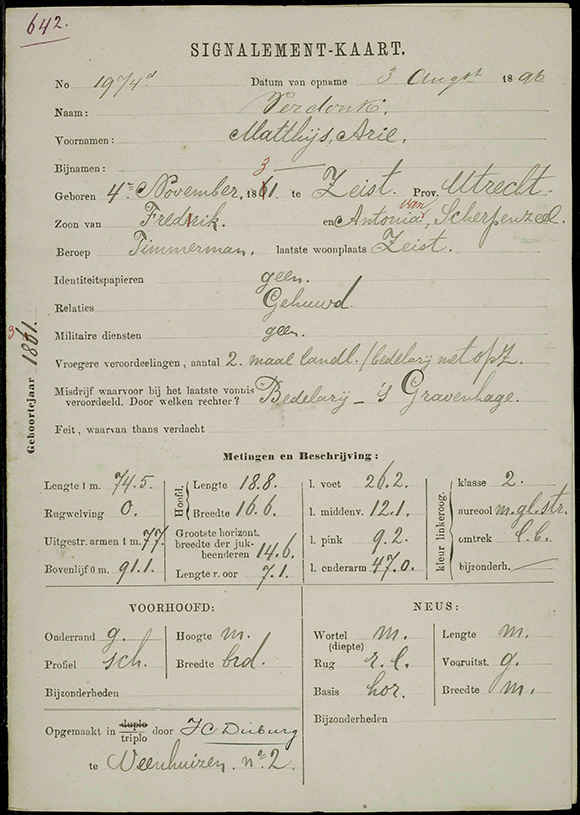 642.
SIGNALEMENT-KAART.
No 1974d Datum van opname 3 Augst 1896
Naam: Verdonk.
Voornamen: Matthijs, Arie.
Bijnamen:
Geboren 4en November, 1861 3 te Zeist. Prov. Utrecht.
Zoon van Fredrik. en Antonia van Scherpenzeel.
Beroep Timmerman. laatste woonplaats Zeist.
Identiteitspapieren geen.
Relaties Gehuwd
Militaire diensten geen.
Vroegere veroordeelingen, aantal 2. maal landl./bedelarij met opz.
Misdrijf waarvoor bij het laatste vonnis
veroordeeld. Door welken rechter? Bedelarij - 's Gravenhage.
Feit, waarvan thans verdacht
Geboortejaar 1861. 3
Metingen en Beschrijving:
Lengte 1 m. 74.5.
Rugwelving 0.
Uitgestr. armen 1 m. 77.
Bovenlijf 0 m. 91.1.
Hoofd.
Lengte 18.8.
Breedte 16.6.
Grootste horizont.
breedte der juk-
beenderen 14.6.
Lengte r. oor 7.1.
l. voet 26.2.
l. middenv. 12.1.
l. pink 9.2.
l. onderarm 47.0.
kleur linkeroog.
klasse 2.
aureool m. gl. str.
omtrek l. b.
bijzonderh.
VOORHOOFD:
Onderrand g. Hoogte m.
Profiel sch. Breedte brd.
Bijzonderheden
NEUS:
Wortel m. Lengte m.
(diepte)
Rug r. l. Vooruitst. g.
Basis hor. Breedte m.
Bijzonderheden
Opgemaakt in duplo triplo door
te Veenhuizen. no. 2.